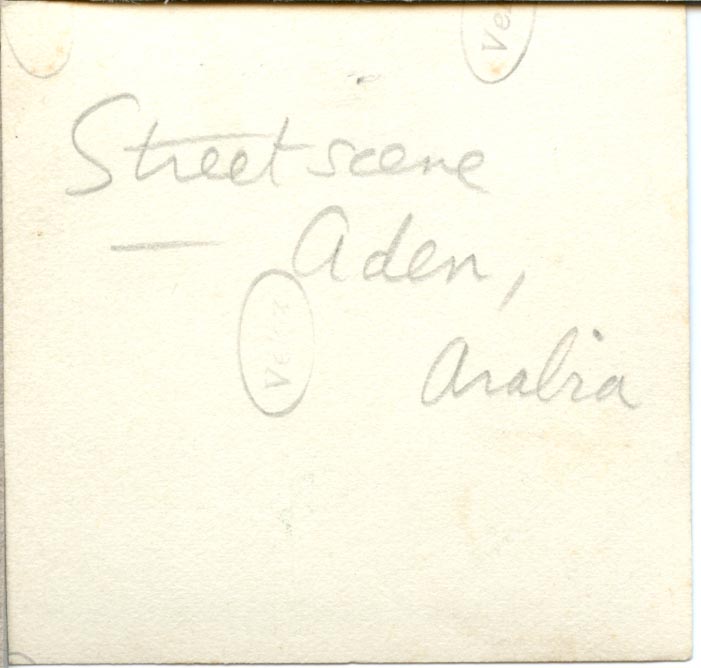 Street scene
— Aden,
Arabia
Velox